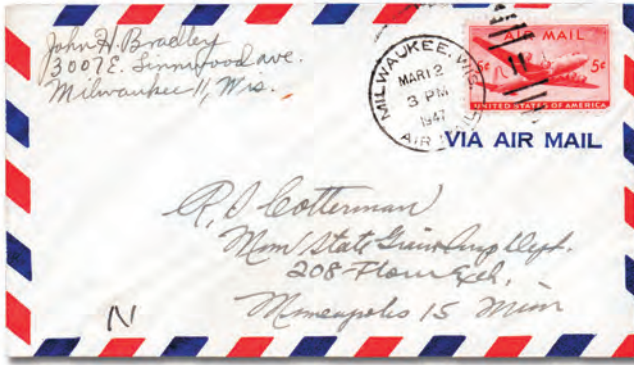 John H. Bradley
3007 E. Linnwood ave.
Milwaukee 11, Wis.
MILWAUKEE, WIS.
MAR 12
3 PM
1947
AIR MAIL
AIR MAIL
5¢ 5¢
UNITED STATES OF AMERICA
VIA AIR MAIL
R. J. Cotterman
Minn State Grain Insp Dept.
208 Flour Exch,
Minneapolis 15 Minn
N